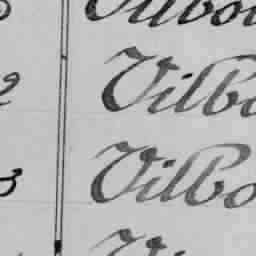 Vilbo
2 Vilbo
3 Vilbo